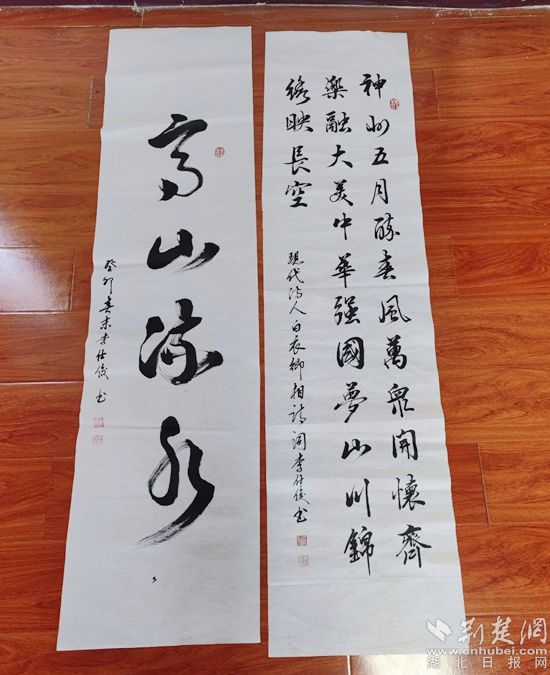 神州五月醉春風萬眾開懷齊
樂融大美中華强國夢山川錦
繡映長空
現代诗人白衣卿相诗词李仕俊书
高山流水
癸卯春末李仕俊书
荆楚網
www.cnhubei.com
湖北日报网